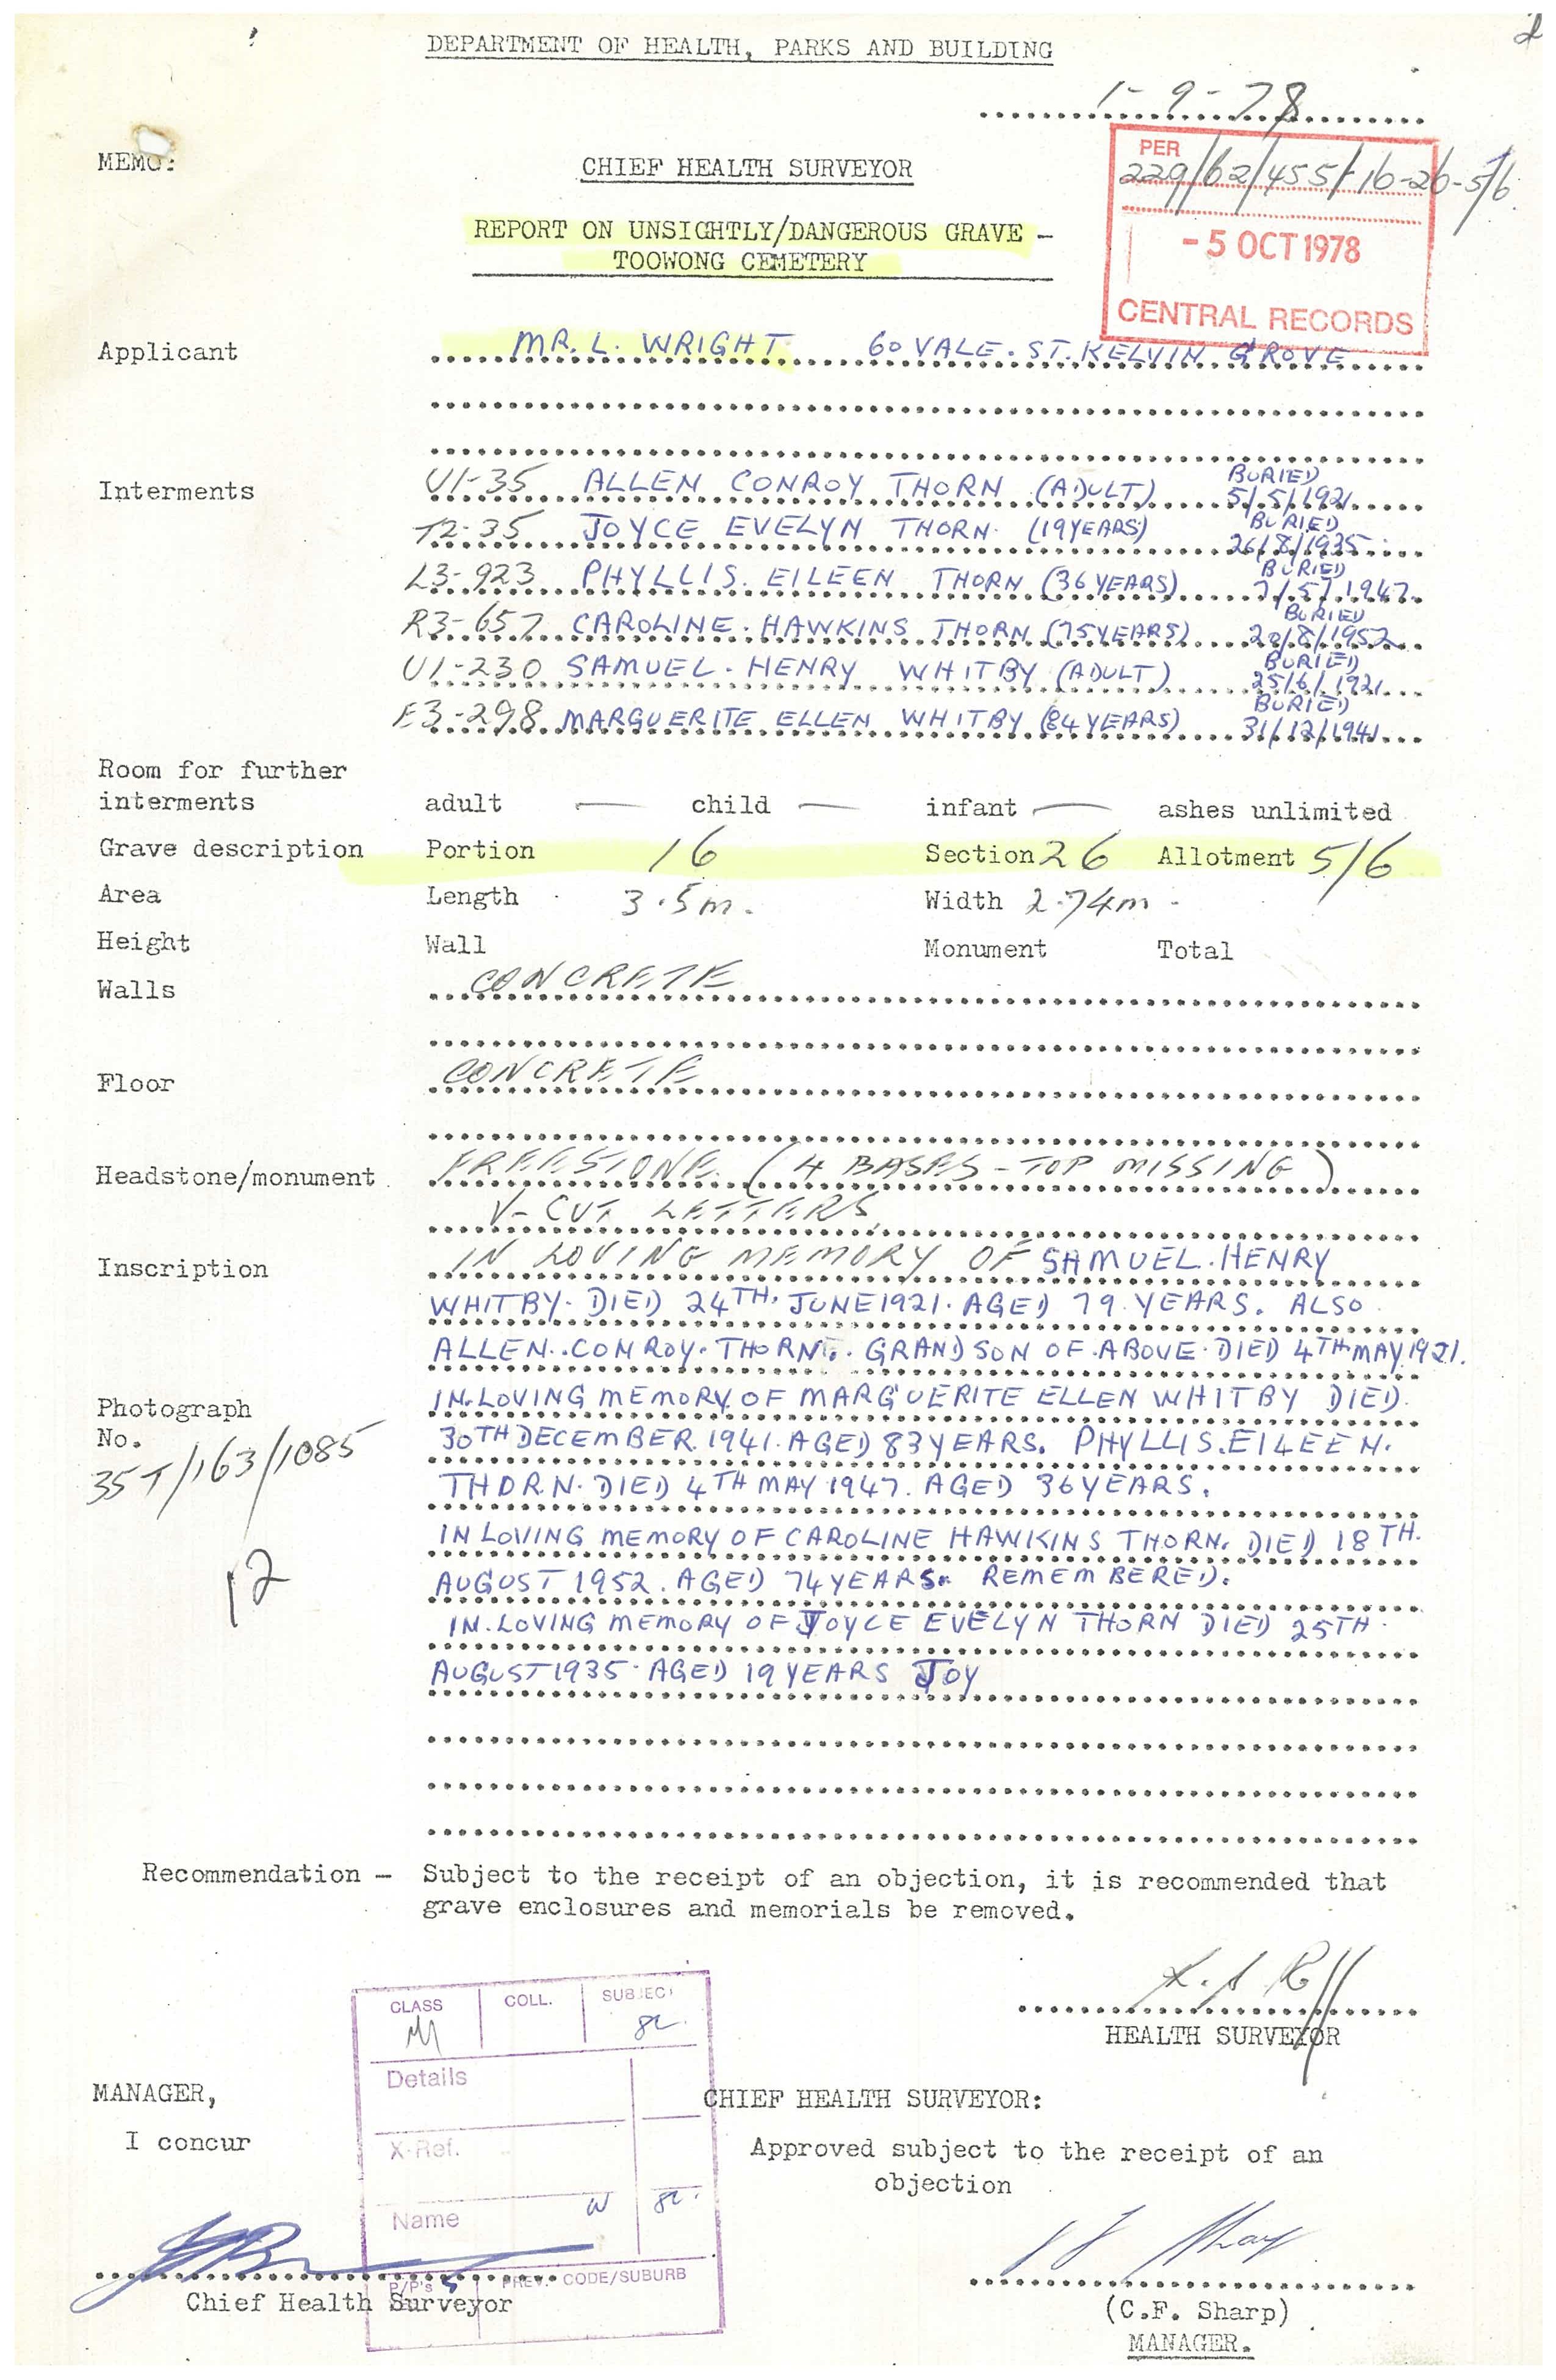 2
DEPARTMENT OF HEALTH, PARKS AND BUILDING
1-9-78
MEMO:
CHIEF HEALTH SURVEYOR
PER
229/62/455/-16-26-5/6.
- 5 OCT 1978
CENTRAL RECORDS
REPORT ON UNSIGHTLY/DANGEROUS GRAVE -
TOOWONG CEMETERY
Applicant MR. L. WRIGHT 60 VALE. ST. KELVIN GROVE
Interments U1-35 ALLEN CONROY THORN (ADULT) BURIED 5/5/1921
T2-35 JOYCE EVELYN THORN (19 YEARS) BURIED 26/8/1935
L3-923 PHYLLIS. EILEEN THORN (36 YEARS) BURIED 7/5/1947
R3-657 CAROLINE. HAWKINS THORN (75 YEARS) BURIED 20/8/1952
U1-230 SAMUEL. HENRY WHITBY (ADULT) BURIED 25/6/1921
E3-298 MARGUERITE ELLEN WHITBY (84 YEARS) BURIED 31/12/1941
Room for further
interments adult — child — infant — ashes unlimited
Grave description Portion 16 Section 26 Allotment 5/6
Area Length 3.5m. Width 2.74m
Height Wall Monument Total
Walls CONCRETE
Floor CONCRETE
Headstone/monument FREESTONE (4 BASES - TOP MISSING)
V-CUT LETTERS
Inscription IN LOVING MEMORY OF SAMUEL. HENRY
WHITBY. DIED 24TH. JUNE 1921. AGED 79 YEARS. ALSO
ALLEN. CONROY. THORN. GRANDSON OF ABOVE. DIED 4TH MAY 1921.
IN LOVING MEMORY OF MARGUERITE ELLEN WHITBY DIED
30TH DECEMBER 1941. AGED 83 YEARS. PHYLLIS. EILEEN.
THORN. DIED 4TH MAY 1947. AGED 36 YEARS.
IN LOVING MEMORY OF CAROLINE HAWKINS THORN. DIED 18TH.
AUGUST 1952. AGED 74 YEARS. REMEMBERED.
IN LOVING MEMORY OF JOYCE EVELYN THORN DIED 25TH
AUGUST 1935. AGED 19 YEARS JOY
Photograph
No.
35T/163/1085
12
Recommendation - Subject to the receipt of an objection, it is recommended that
grave enclosures and memorials be removed.
HEALTH SURVEYOR
CLASS COLL. SUBJECT
M 82.
Details
X-Ref.
Name W 82.
P/P's 5 PREV. CODE/SUBURB
MANAGER,
I concur
Chief Health Surveyor
CHIEF HEALTH SURVEYOR:
Approved subject to the receipt of an
objection
(C.F. Sharp)
MANAGER.